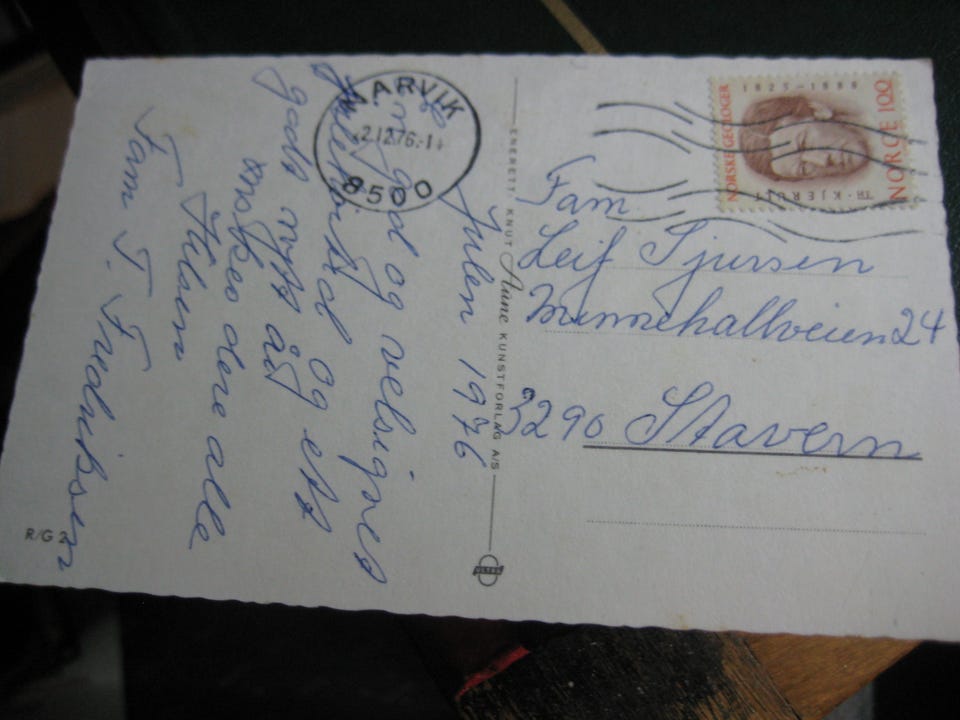 Julen 1976
En god og velsignet
julehøytid og ett
godt nytt år
ønskes dere alle
Hilsen
Fam T. Fredriksen
R/G 2
NARVIK
2.12.76.-1
8500
ENERETT: KNUT Aune KUNSTFORLAG A/S
ULTRA
1825-1888
NORSKE GEOLOGER
TH. KJERULF
NORGE 100
Fam.
Leif Tjursen
Minnehallveien 24
3290 Stavern